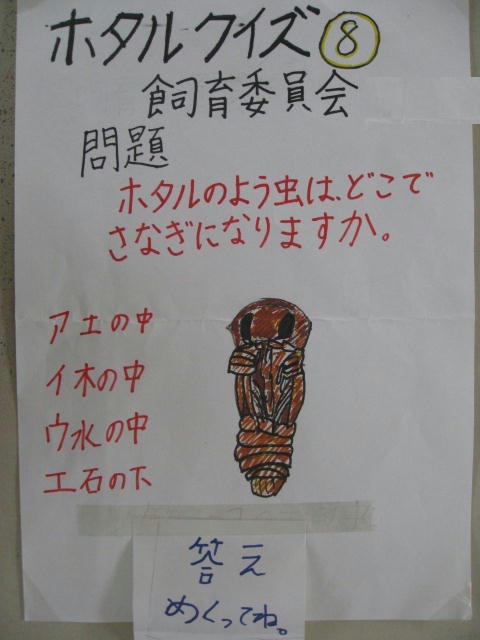 ホタルクイズ⑧
飼育委員会
問題
ホタルのよう虫は、どこで
さなぎになりますか。
ア土の中
イ木の中
ウ水の中
エ石の下
答え
めくってね。